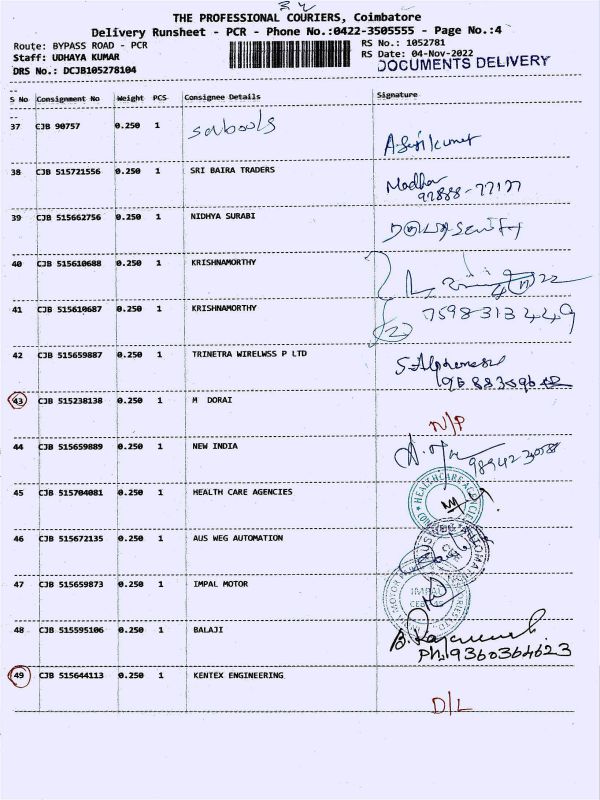 THE PROFESSIONAL COURIERS, Coimbatore
Delivery Runsheet - PCR - Phone No.:0422-3505555 - Page No.:4
Route: BYPASS ROAD - PCR RS No.: 1052781
Staff: UDHAYA KUMAR RS Date: 04-Nov-2022
DRS No.: DCJB105278104 DOCUMENTS DELIVERY
S No Consignment No Weight PCS Consignee Details Signature
37 CJB 90757 0.250 1
38 CJB 515721556 0.250 1 SRI BAIRA TRADERS Madhav
39 CJB 515662756 0.250 1 NIDHYA SURABI
40 CJB 515610688 0.250 1 KRISHNAMORTHY
41 CJB 515610687 0.250 1 KRISHNAMORTHY 7598313449
42 CJB 515659887 0.250 1 TRINETRA WIRELWSS P LTD
43 CJB 515238138 0.250 1 M DORAI N/P
44 CJB 515659889 0.250 1 NEW INDIA
45 CJB 515704081 0.250 1 HEALTH CARE AGENCIES
46 CJB 515672135 0.250 1 AUS WEG AUTOMATION
47 CJB 515659873 0.250 1 IMPAL MOTOR IMPAL
48 CJB 515595106 0.250 1 BALAJI
Ph: 9360364623
49 CJB 515644113 0.250 1 KENTEX ENGINEERING D/L